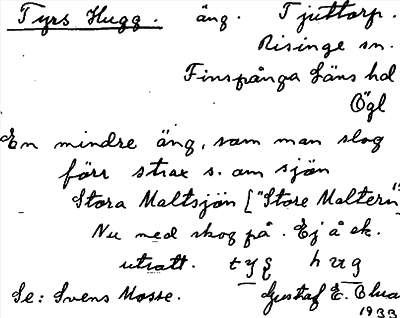 Tyrs Hugg. äng. Tjuttorp.
Risinge sn.
Finspånga Läns hd
Ögl
En mindre äng, som man slog
förr strax s. om sjön
Stora Maltsjön ["Store Maltern"
Nu med skog på. Ej å ek.
utsatt.
Se: Svens Mosse. Gustaf E.
1933